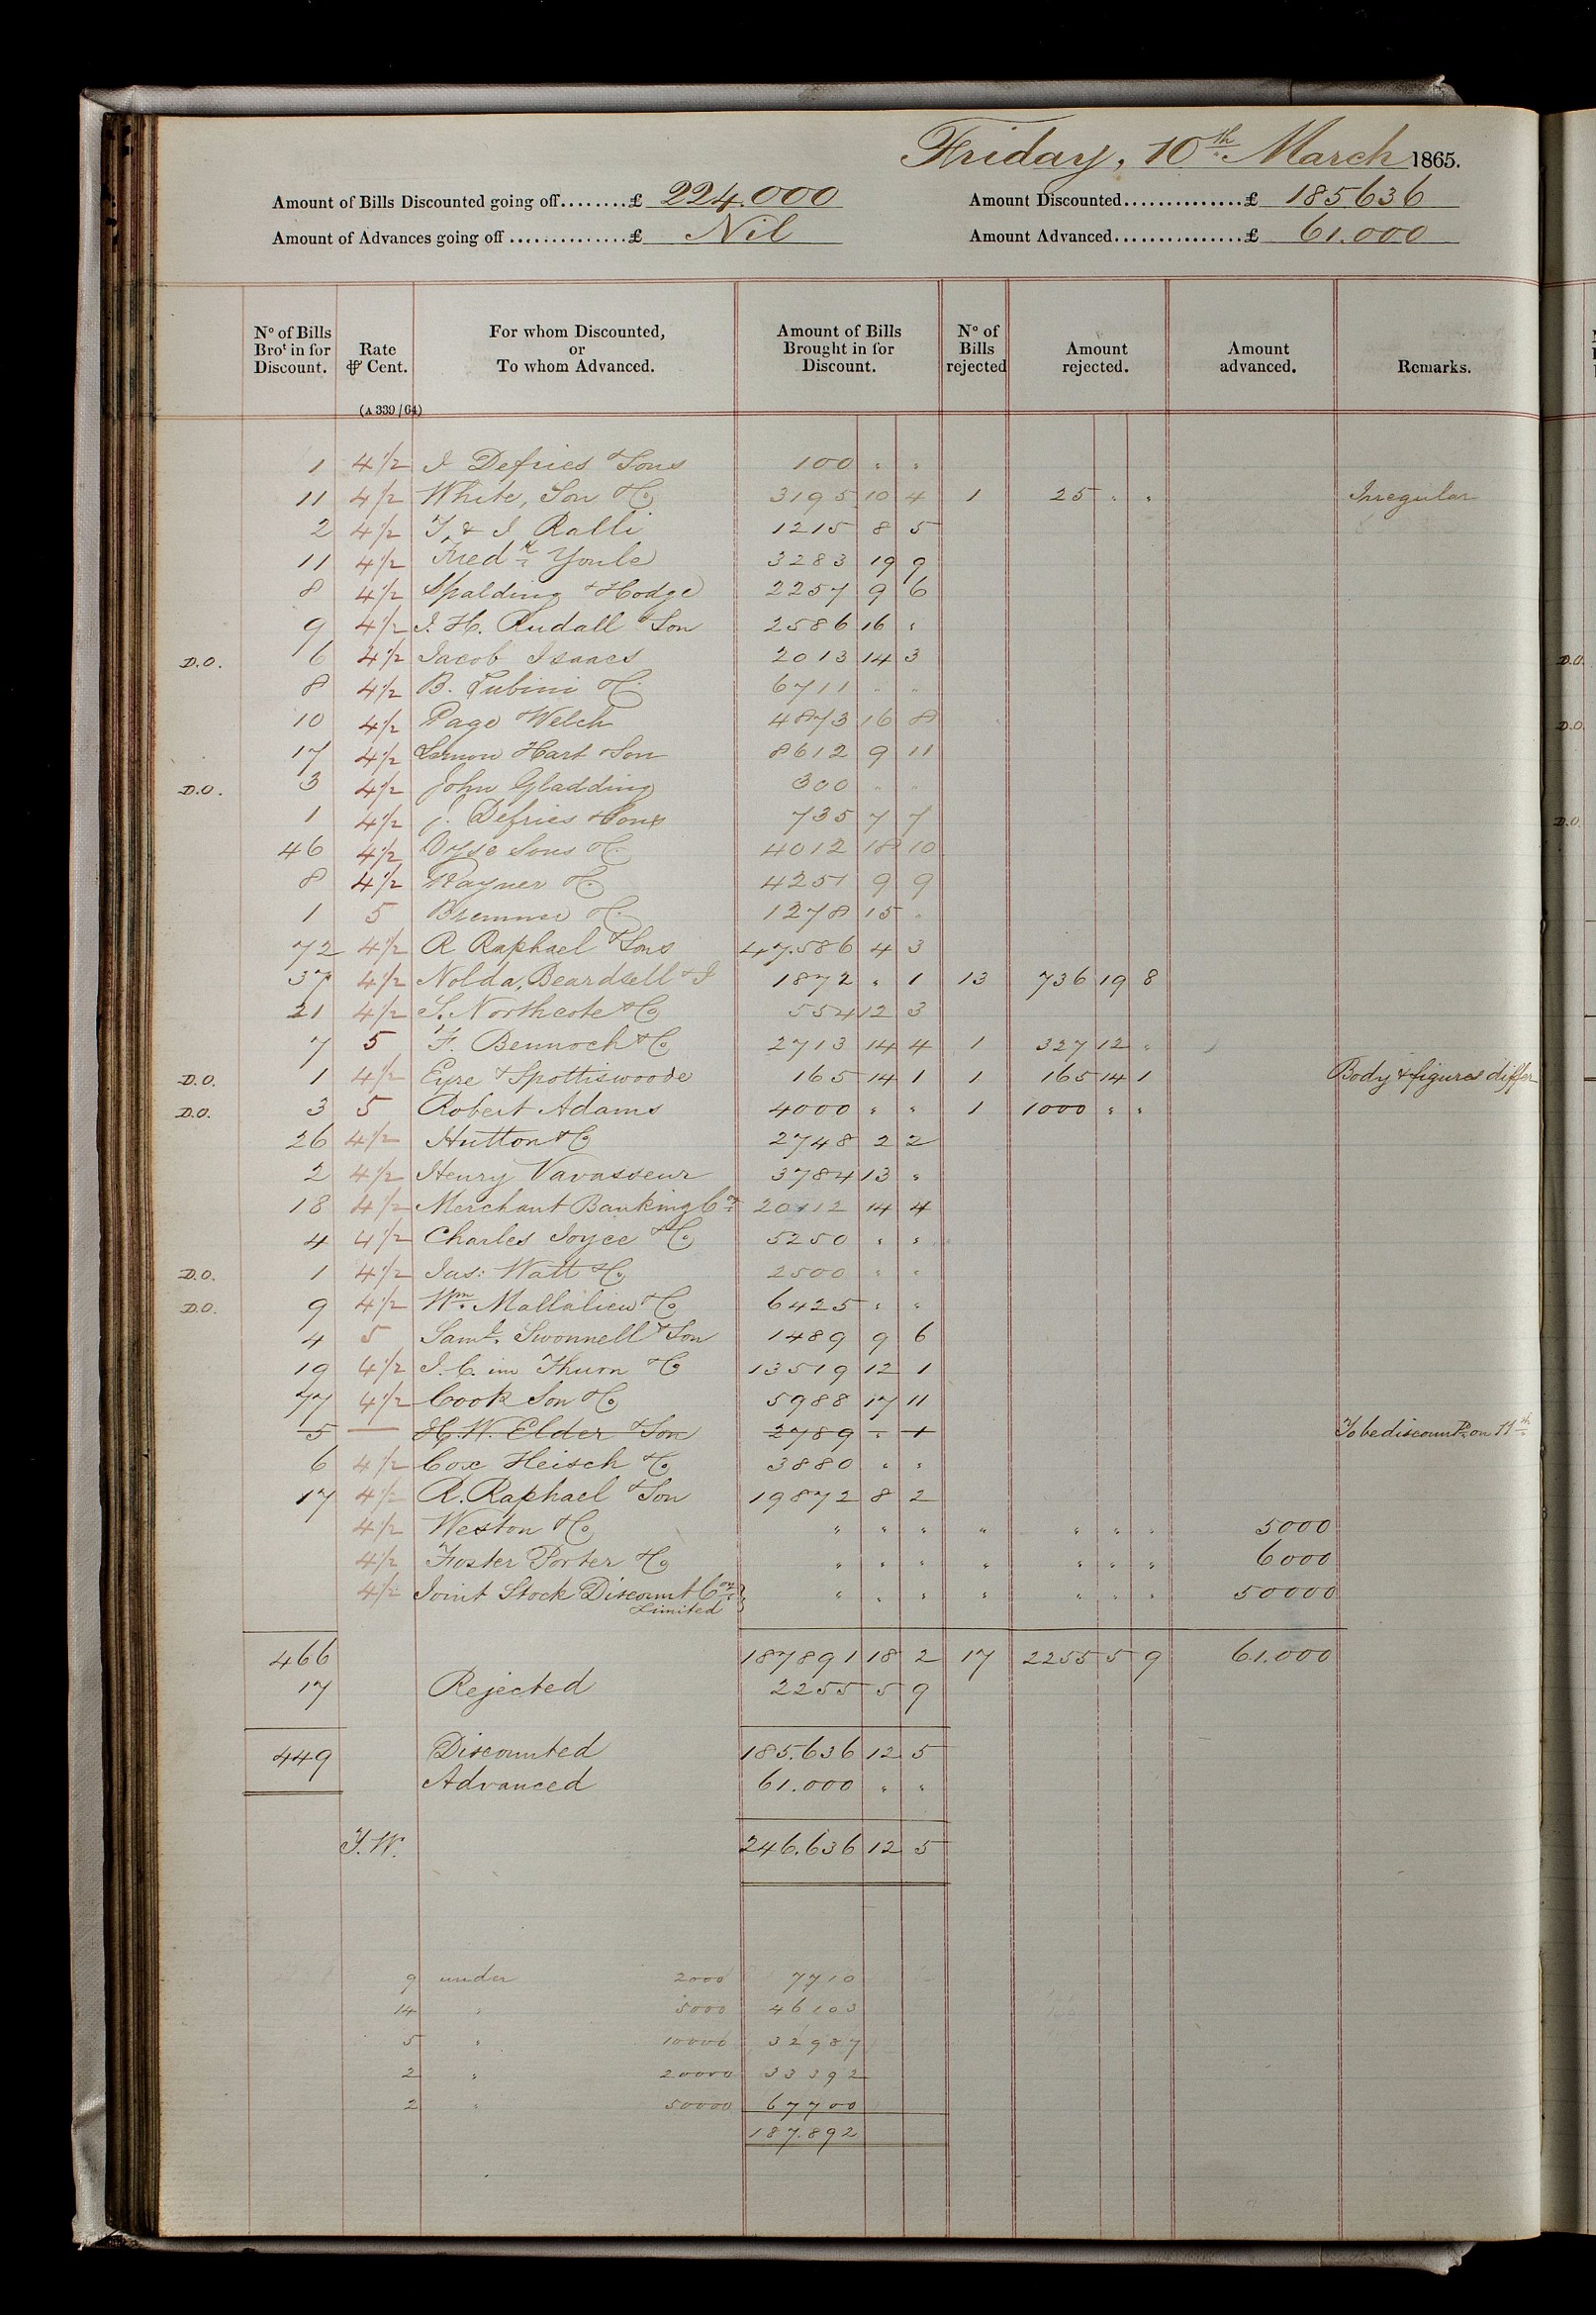 Friday, 10th March 1865.
Amount of Bills Discounted going off........£ 224.000 Amount Discounted..............£ 185636
Amount of Advances going off ..............£ Nil Amount Advanced...............£ 61.000
No of Bills Brot in for Discount. Rate ⅌ Cent. For whom Discounted, or To whom Advanced. Amount of Bills Brought in for Discount. No of Bills rejected Amount rejected. Amount advanced. Remarks.
(A 339/64)
1 4½ J Defries & Sons 100 " "
11 4½ White, Son & Co 3195 10 4 1 25 " " Irregular
2 4½ T & J Ralli 1215 8 5
11 4½ Fredk Youle 3283 19 9
8 4½ Spalding & Hodge 2257 9 6
9 4½ J. H. Rudall & Son 2586 16 "
D.O. 6 4½ Jacob Isaacs 2013 14 3
8 4½ B. Lubini & Co 6711 " "
10 4½ Page & Welch 4873 16 8
17 4½ Lemon Hart & Son 8612 9 11
D.O. 3 4½ John Gladding 300 " "
1 4½ J. Defries & Sons 735 7 7
46 4½ Vyse Sons & Co 4012 18 10
8 4½ Rayner & Co 4251 9 9
1 5 Bremner & Co 1278 15 "
72 4½ R Raphael & Sons 47.586 4 3
37 4½ Nolda, Beardsell & J 1872 " 1 13 736 19 8
21 4½ S. Northcote & Co 554 12 3
7 5 F. Bennoch & Co 2713 14 4 1 327 12 "
D.O. 1 4½ Eyre & Spottiswoode 165 14 1 1 165 14 1 Body & figures differ
D.O. 3 5 Robert Adams 4000 " " 1 1000 " "
26 4½ Hutton & Co 2748 2 2
2 4½ Henry Vavasseur 3784 13 "
18 4½ Merchant Banking Coy 20112 14 4
4 4½ Charles Joyce & Co 5250 " "
D.O. 1 4½ Jas: Watt & Co 2500 " "
D.O. 9 4½ Wm. Mallalieu & Co 6425 " "
4 5 Saml. Swonnell & Son 1489 9 6
19 4½ J. C. im Thurn & Co 13519 12 1
77 4½ Cook Son & Co 5988 17 11
5 — H. W. Elder & Son 2789 " 1 To be discountd on 11th
6 4½ Cox Heisch & Co 3880 " "
17 4½ R. Raphael & Son 19872 8 2
4½ Weston & Co " " " " " " " 5000
4½ Foster Porter & Co " " " " " " " 6000
4½ Joint Stock Discount Coy " " " " " " " 50000
Limited
466 187891 18 2 17 2255 5 9 61.000
17 Rejected 2255 5 9
449 Discounted 185.636 12 5
Advanced 61.000 " "
T.W. 246.636 12 5
9 under 2000 7710
14 " 5000 46103
5 " 10000 32987
2 " 20000 33392
2 " 50000 67700
187.892